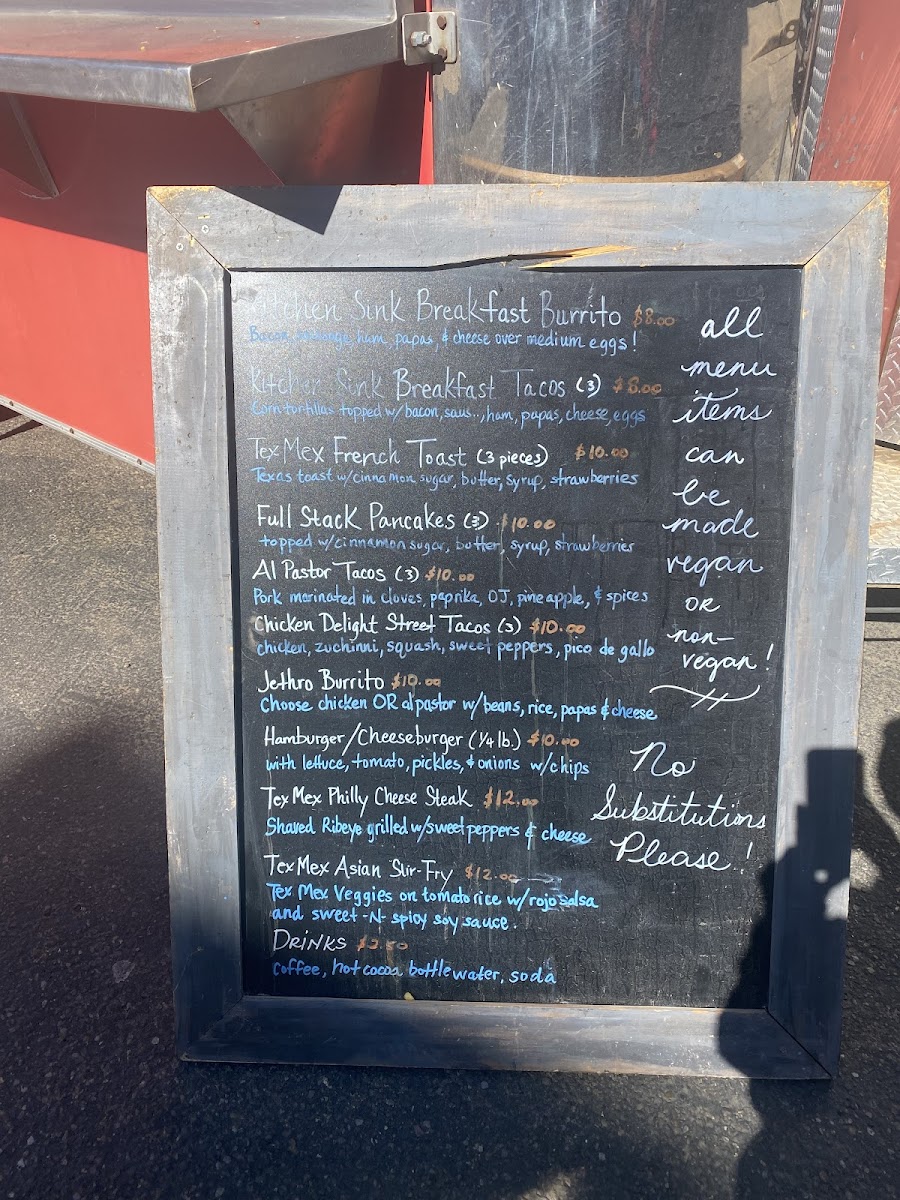 Kitchen Sink Breakfast Burrito $8.00
Bacon, sausage, ham, papas, & cheese over medium eggs!
Kitchen Sink Breakfast Tacos (3) $8.00
Corn tortillas topped w/bacon, saus.., ham, papas, cheese, eggs
Tex Mex French Toast (3 pieces) $10.00
Texas toast w/cinnamon sugar, butter, syrup, strawberries
Full Stack Pancakes (3) $10.00
topped w/cinnamon sugar, butter, syrup, strawberries
Al Pastor Tacos (3) $10.00
Pork marinated in cloves, paprika, OJ, pineapple, & spices
Chicken Delight Street Tacos (3) $10.00
chicken, zuchinni, squash, sweet peppers, pico de gallo
Jethro Burrito $10.00
Choose chicken OR al pastor w/beans, rice, papas & cheese
Hamburger/Cheeseburger (1/4 lb.) $10.00
with lettuce, tomato, pickles, & onions w/chips
Tex Mex Philly Cheese Steak $12.00
Shaved Ribeye grilled w/sweet peppers & cheese
Tex Mex Asian Stir-Fry $12.00
Tex Mex Veggies on tomato rice w/rojo salsa
and sweet -N- spicy soy sauce.
DRINKS $2.50
coffee, hot cocoa, bottle water, soda
all
menu
items
can
be
made
vegan
OR
non-
vegan!
No
Substitutions
Please!